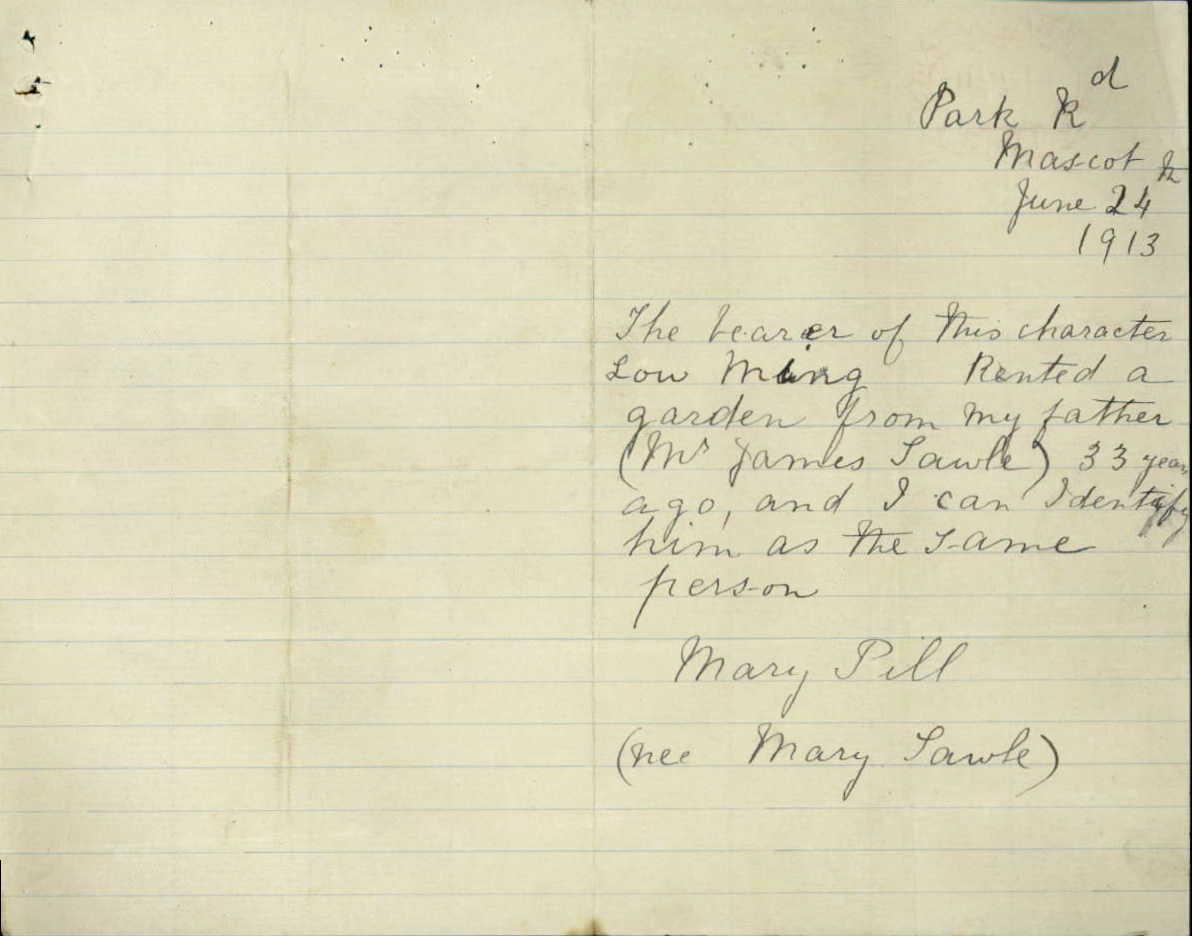 Park Rd
Mascot
June 24th
1913
The bearer of this character
Low Ming Rented a
garden from my father
(Mr James Sawle) 33 years
ago, and I can Identify
him as the same
person
Mary Pill
(nee Mary Sawle)